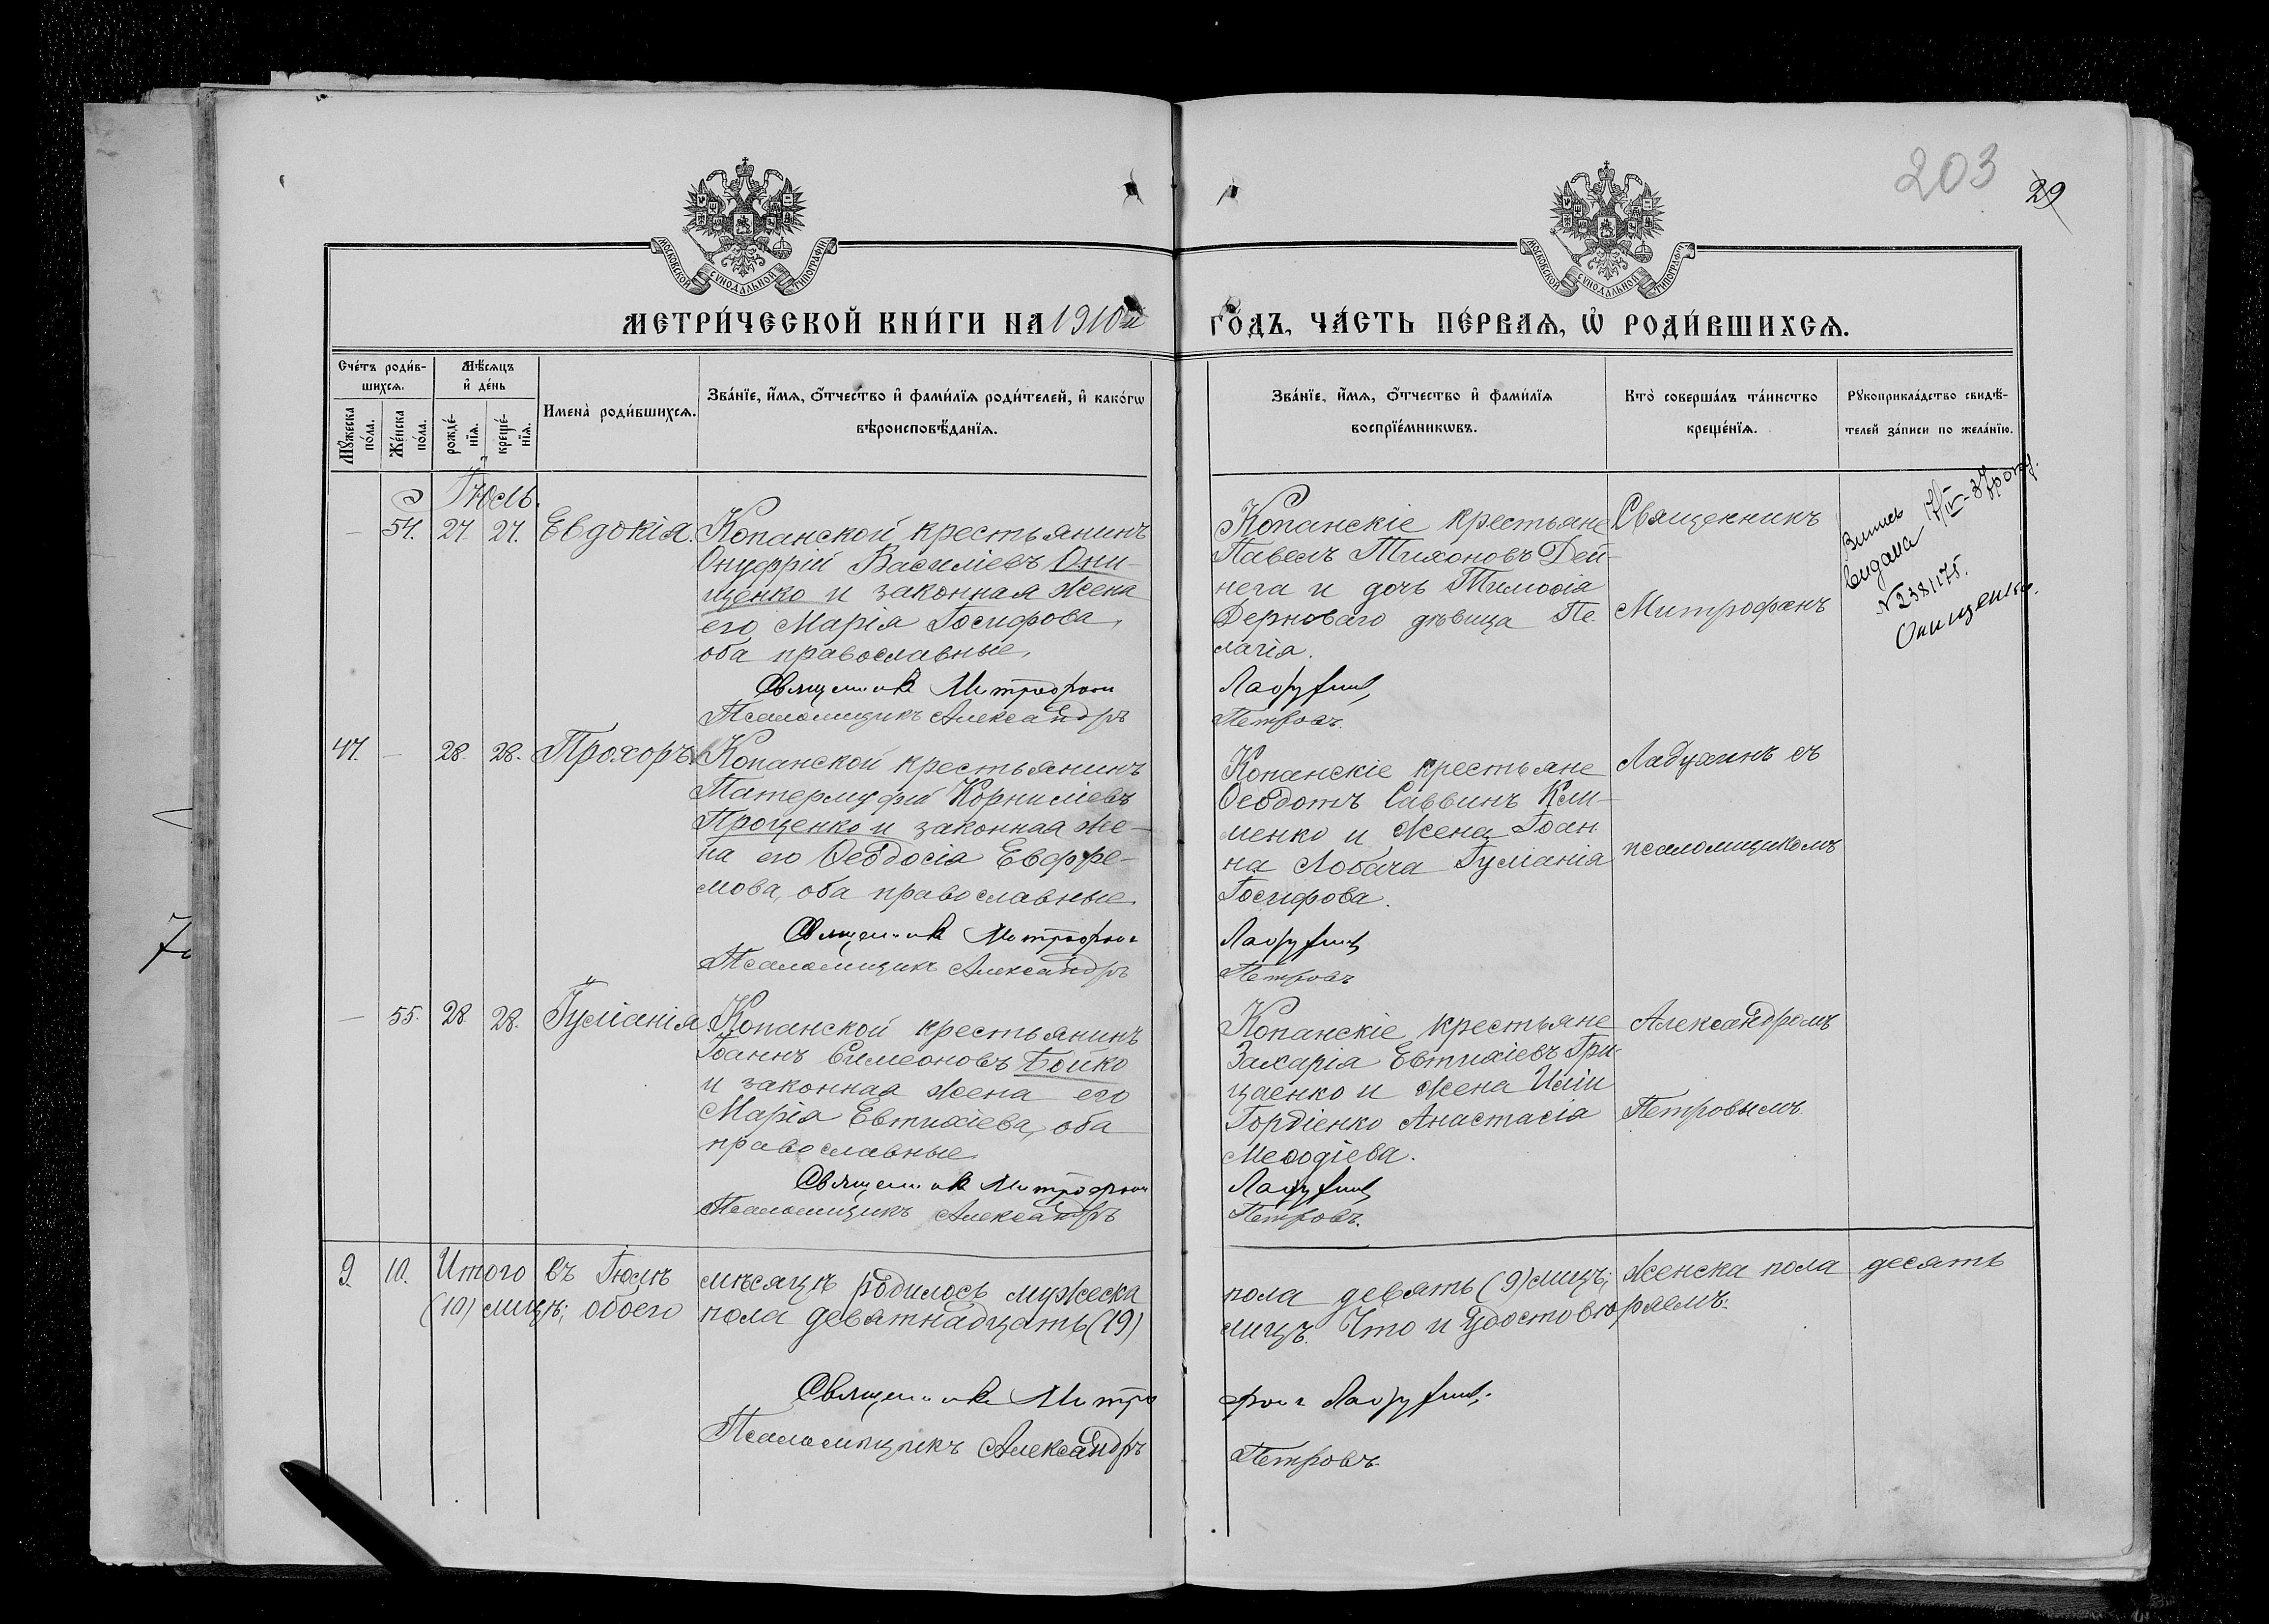 203
29
МОСКОВСКОЙ СѴНОДАЛЬНОЙ ТИПОГРАФІИ
МОСКОВСКОЙ СѴНОДАЛЬНОЙ ТИПОГРАФІИ
МЕТРИ́ЧЕСКОЙ КНИ́ГИ НА 1910й
ГО́ДЪ, ЧА́СТЬ ПЕ́РВАѦ, Ѡ҆ РОДИ́ВШИХСѦ.
Сче́тъ роди́в-
шихсѧ.
Мѣ́сѧцъ
и҆ де́нь
Мꙋ́жеска по́ла.
Же́нска по́ла.
рожде́-
нїѧ.
креще́-
нїѧ.
Имена̀ роди́вшихсѧ.
Зва́нїе, и҆́мѧ, ѻ҆́тчество и҆ фами́лїѧ роди́телей, и҆ како́гѡ
вѣроисповѣ́данїѧ.
Зва́нїе, и҆́мѧ, ѻ҆́тчество и҆ фами́лїѧ
воспрїе́мникѡвъ.
Кто̀ соверша́лъ та́инство
креще́нїѧ.
Рꙋкоприкла́дство свидѣ́-
телей за́писи по жела́нїю.
Іюль.
— 54. 27. 27. Евдокія.
Копанской крестьянинъ
Онуфрій Василіевъ Они-
щенко и законная жена
его Марія Іосифова,
оба православные.
Священникъ Митрофанъ
Псаломщикъ Александръ
Копанскіе крестьяне
Павелъ Тихоновъ Дей-
нега и дочь Тимоѳія
Дерноваго дѣвица Пе-
лагія.
Ладухинъ
Петровъ.
Священникъ
Митрофанъ
видана
№ 238/175.
Онищенко.
47. — 28. 28. Прохоръ.
Копанской крестьянинъ
Патермуфій Корниліевъ
Проценко и законная же-
на его Ѳеодосія Евфре-
мова, оба православные.
Священникъ Митрофанъ
Псаломщикъ Александръ
Копанскіе крестьяне
Ѳеодотъ Саввинъ Кли-
менко и жена Іоан-
на Лобача Іуліанія
Іосифова.
Ладухинъ
Петровъ
Ладухинъ съ
псаломщикомъ
— 55. 28. 28. Іуліанія.
Копанской крестьянинъ
Іоаннъ Симеоновъ Бойко
и законная жена его
Марія Евтихіева, оба
православные.
Священникъ Митрофанъ
Псаломщикъ Александръ
Копанскіе крестьяне
Захарія Евтихіевъ Гри-
цаенко и жена Иліи
Гордіенко Анастасія
Меѳодіева.
Ладухинъ
Петровъ.
Александромъ
Петровымъ.
9 10. Итого въ Іюлѣ мѣсяцѣ родилось мужеска пола девять (9) лицъ; женска пола десять
(10) лицъ; обоего пола девятнадцать (19) лицъ. Что и удостовѣряемъ:
Священникъ Митрофанъ Ладухинъ.
Псаломщикъ Александръ Петровъ.